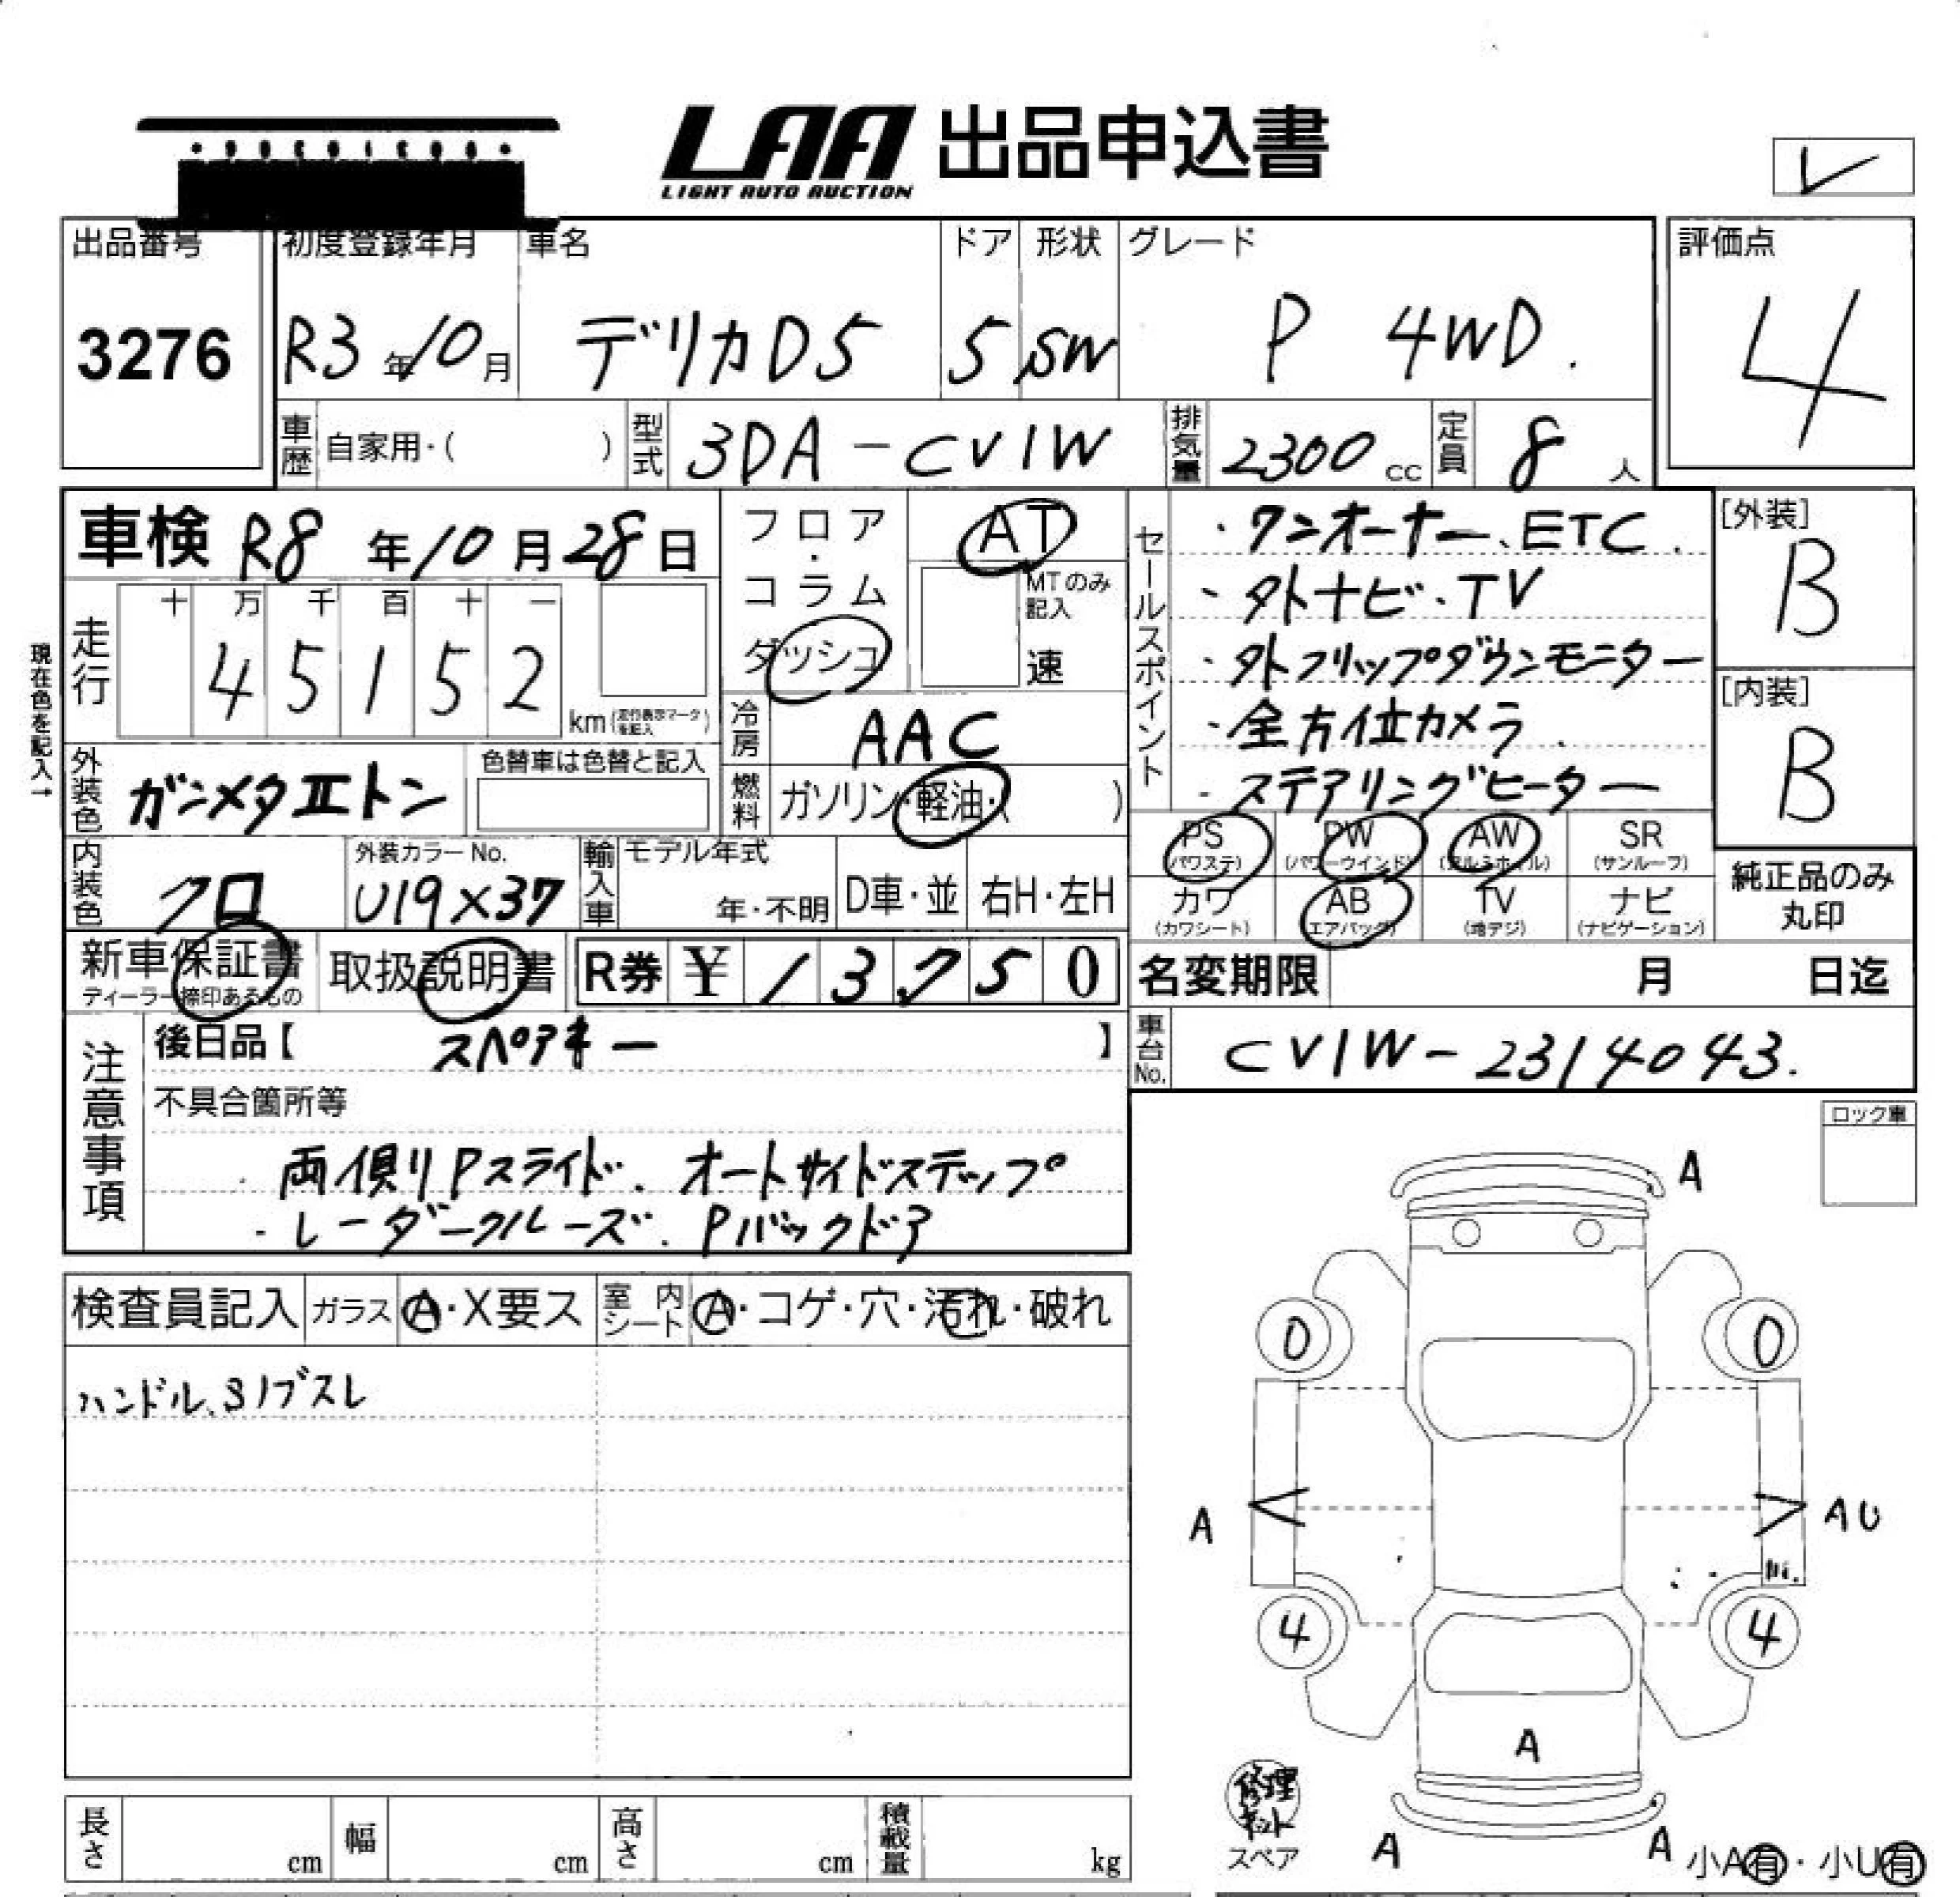 LAA 出品申込書
LIGHT AUTO AUCTION
レ
出品番号 初度登録年月 車名 ドア 形状 グレード 評価点
3276 R3年10月 デリカD5 5 SW P 4WD. 4
車歴 自家用・( ) 型式 3DA-CV1W 排気量 2300cc 定員 8人
車検 R8年10月28日
フロア・コラム ダッシュ
AT
MTのみ記入
速
現在色を記入→
走行 十 万 千 百 十 一
4 5 1 5 2
km(走行表示マークを記入)
冷房 AAC
外装色 ガンメタIIトン
色替車は色替と記入
燃料 ガソリン・軽油・( )
内装色 クロ
外装カラーNo.
U19×37
輸入車 モデル年式
年・不明 D車・並 右H・左H
新車保証書 取扱説明書 R券 ¥ 1 3 7 5 0
ディーラー捺印あるもの
セールスポイント
・ワンオーナー、ETC.
・外ナビ・TV
・外フリップダウンモニター
・全方位カメラ
・ステアリングヒーター
[外装]
B
[内装]
B
PS PW AW SR
(パワステ) (パワーウインド) (アルミホイル) (サンルーフ)
カワ AB TV ナビ
(カワシート) (エアバッグ) (地デジ) (ナビゲーション)
純正品のみ
丸印
名変期限 月 日迄
車台No. CV1W-2314043.
注意事項
後日品【 スペアキー 】
不具合箇所等
・両側Pスライド、オートサイドステップ
・レーダークルーズ、Pバックドア
ロック車
検査員記入 ガラス A・X要ス 室内シート A・コゲ・穴・汚れ・破れ
ハンドル、Sノブスレ
A
0 0
A AU
4 4
A
修理キット
スペア
A A
小A有・小U有
長さ cm 幅 cm 高さ cm 積載量 kg